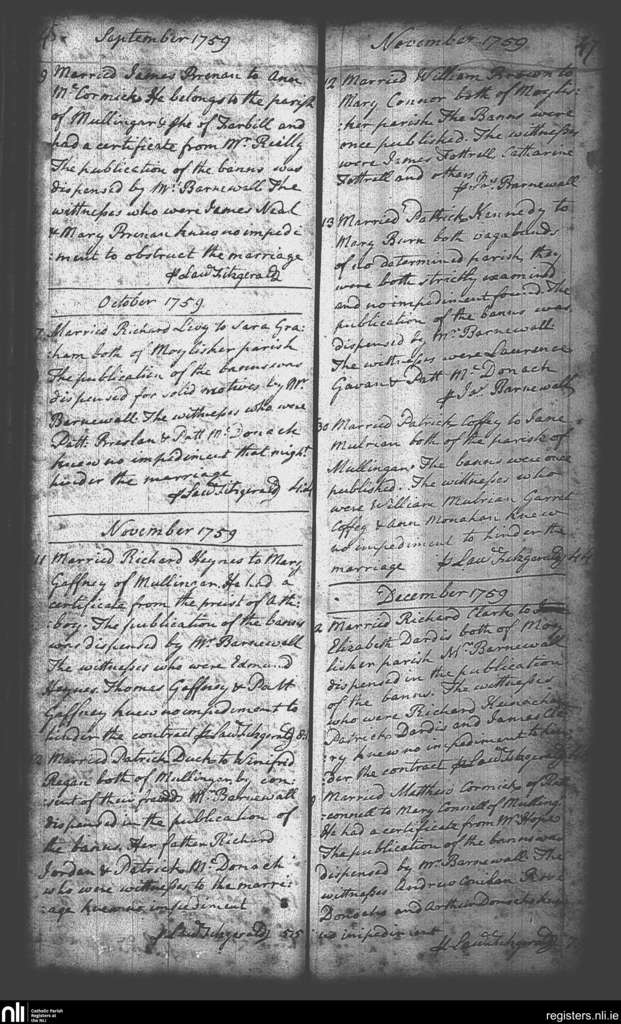 September 1759
9 Married James Brenan to Ann
McCormick He belongs to the parish
of Mullingar & she of Farbill and
had a certificate from Mr. Reilly
The publication of the banns was
dispensed by Mr. Barnewall The
wittnesses who were James Neal
& Mary Brenan knew no impedi
:ment to obstruct the marriage
Law: Fitzgerald
October 1759
7 Married Richard Levy to Sara Gra:
ham both of Moylisher parish
The publication of the banns was
dispensed for solid motives by Mr.
Barnewall The wittnesses who were
Patt: Breslan & Patt McDonach
knew no impediment that might
hinder the marriage
Law: Fitzgerald 4:4
November 1759
11 Married Richard Heynes to Mary
Gaffney of Mullingar. He had a
certificate from the preist of Ath:
:boy. The publication of the banns
was dispensed by Mr. Barnewall
The wittnesses who were Edmund
Heynes Thomas Gaffney & Patt
Gaffney knew no impediment to
hinder the contract Law: Fitzgerald
12 Married Patrick Duck to Winifred
Regan both of Mullingar by con:
:sent of their freinds Mr. Barnewall
dispensed in the publication of
the banns. Her father Richard
Jordan & Patrick McDonach
who were wittnesses to the marri:
:age knew no impediment
Law: Fitzgerald
November 1759 47
12 Married William Brown to
Mary Connor both of Moylis:
:her parish The Banns were
once published The wittnesses
were James Fottrell Catharine
Fottrell and others
Jas. Barnewall
13 Married Pattrick Kennedy to
Mary Burn both vagabunds
of no determined parish, they
were both strictly examined
and no impediment found. The
publication of the banns was
dispensed by Mr. Barnewall
The wittnesses were Laurence
Gavan & Patt McDonach
Jas. Barnewall
30 Married Patrick Coffey to Jane
Mulrian both of the parish of
Mullingar. The banns were once
published. The wittnesses who
were William Mulrian Garret
Coffey & Ann Monahan knew
no impediment to hinder the
marriage Law: Fitzgerald 4:4
December 1759
2 Married Richard Clark to
Elizabeth Dardis both of Moy
lisher parish Mr. Barnewall
dispensed in the publication
of the banns. The wittnesses
who were Richard
Patrick Dardis and James
knew no impediment to hin:
:der the contract Law: Fitzgerald
Married Matthew Cormick of Rath
:connell to Mary Connell of Mulling:
He had a certificate from Mr. Hope
The publication of the banns was
dispensed by Mr. Barnewall. The
wittnesses Andrew Conilan Rose
Donochs and Arthur Donochs knew
no impediment
Law: Fitzgerald
nli
Catholic Parish
Registers at
the NLI
registers.nli.ie